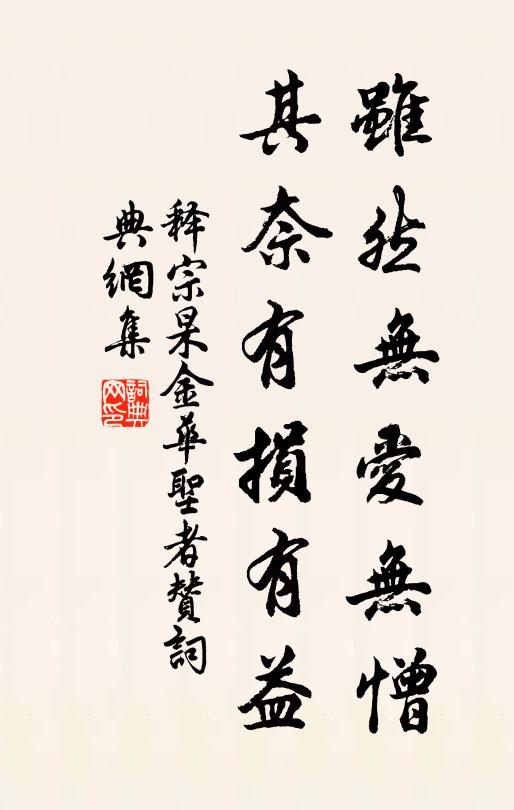 雖然無愛無憎
其奈有損有益
释宗杲金華聖者贊詞
典網集
詞典網印